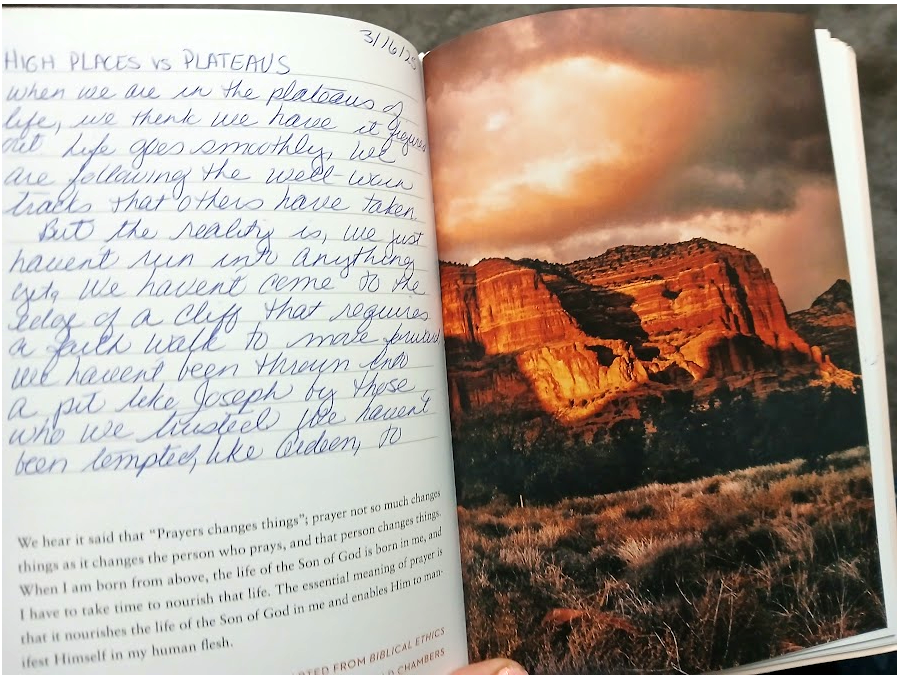 3/16/25
HIGH PLACES vs PLATEAUS
when we are in the plateaus of
life, we think we have it figured
out life goes smoothly, we
are following the well-worn
tracks that others have taken
But the reality is, we just
havent run into anything
yet, we havent come to the
edge of a cliff that requires
a faith walk to move forward
we havent been thrown into
a pit like Joseph by those
who we trusted We haven't
been tempted, like Gideon, to
We hear it said that “Prayers changes things”; prayer not so much changes
things as it changes the person who prays, and that person changes things.
When I am born from above, the life of the Son of God is born in me, and
I have to take time to nourish that life. The essential meaning of prayer is
that it nourishes the life of the Son of God in me and enables Him to man-
ifest Himself in my human flesh.
FROM BIBLICAL ETHICS
CHAMBERS